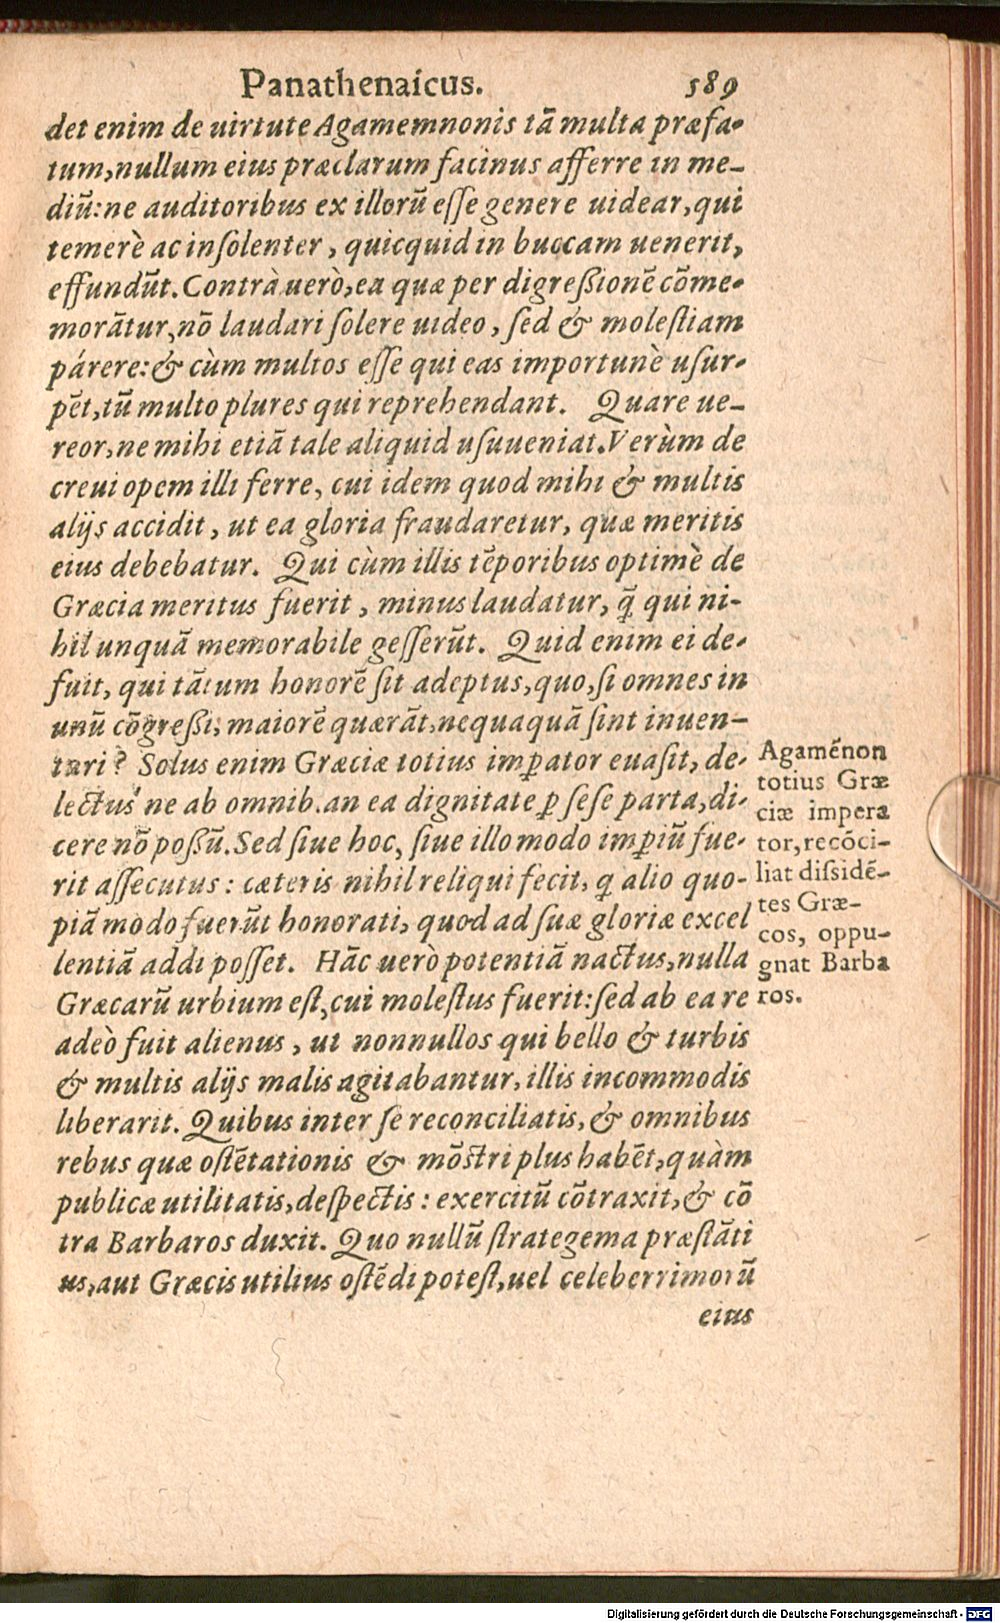 Panathenaicus. 589
det enim de uirtute Agamemnonis tã multa præfa-
tum, nullum eius præclarum facinus afferre in me-
diũ: ne auditoribus ex illorũ esse genere uidear, qui
temerè ac insolenter, quicquid in buccam uenerit,
effundũt. Contrà uerò, ea quæ per digreßionẽ cõme-
morãtur, nõ laudari solere uideo, sed & molestiam
párere: & cùm multos esse qui eas importunè usur-
pẽt, tũ multo plures qui reprehendant. Quare ue-
reor, ne mihi etiã tale aliquid usuueniat. Verùm de
creui opem illi ferre, cui idem quod mihi & multis
alijs accidit, ut ea gloria fraudaretur, quæ meritis
eius debebatur. Qui cùm illis tẽporibus optimè de
Græcia meritus fuerit, minus laudatur, q̃ qui ni-
hil unquã memorabile gesserũt. Quid enim ei de-
fuit, qui tãtum honorẽ sit adeptus, quo, si omnes in
unũ cõgreßi, maiorẽ quærãt, nequaquã sint inuen-
turi? Solus enim Græciæ totius imꝑator euasit, de-
lectus ne ab omnib. an ea dignitate ꝑ sese parta, di-
cere nõ poßũ. Sed siue hoc, siue illo modo imꝑiũ fue-
rit assecutus: cæteris nihil reliqui fecit, q̃ alio quo-
piã modo fuerũt honorati, quod ad suæ gloriæ excel
lentiã addi posset. Hãc uerò potentiã nactus, nulla
Græcarũ urbium est, cui molestus fuerit: sed ab ea re
adeò fuit alienus, ut nonnullos qui bello & turbis
& multis alijs malis agitabantur, illis incommodis
liberarit. Quibus inter se reconciliatis, & omnibus
rebus quæ ostẽtationis & mõstri plus habẽt, quàm
publicæ utilitatis, despectis: exercitũ cõtraxit, & cõ
tra Barbaros duxit. Quo nullũ strategema præstãti
us, aut Græcis utilius ostẽdi potest, uel celeberrimorũ
eius
Agamẽnon
totius Græ
ciæ impera
tor, recõci-
liat dissidẽ-
tes Græ-
cos, oppu-
gnat Barba
ros.
Digitalisierung gefördert durch die Deutsche Forschungsgemeinschaft - DFG